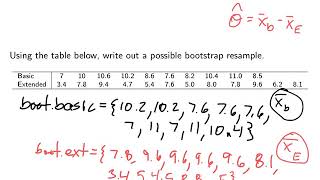 θ̂ = x̄b - x̄E
Using the table below, write out a possible bootstrap resample.
Basic 7 10 10.6 10.2 8.6 7.6 8.2 10.4 11.0 8.5
Extended 3.4 7.8 9.4 4.7 5.4 7.6 5.0 8.0 7.8 9.6 6.2 8.1
boot.basic = {10.2, 10.2, 7.6, 7.6, 7.6,
7, 11, 7, 11, 10.4} x̄b
boot.ext = {7.8, 9.6, 9.6, 9.6, 9.6, 8.1, x̄E